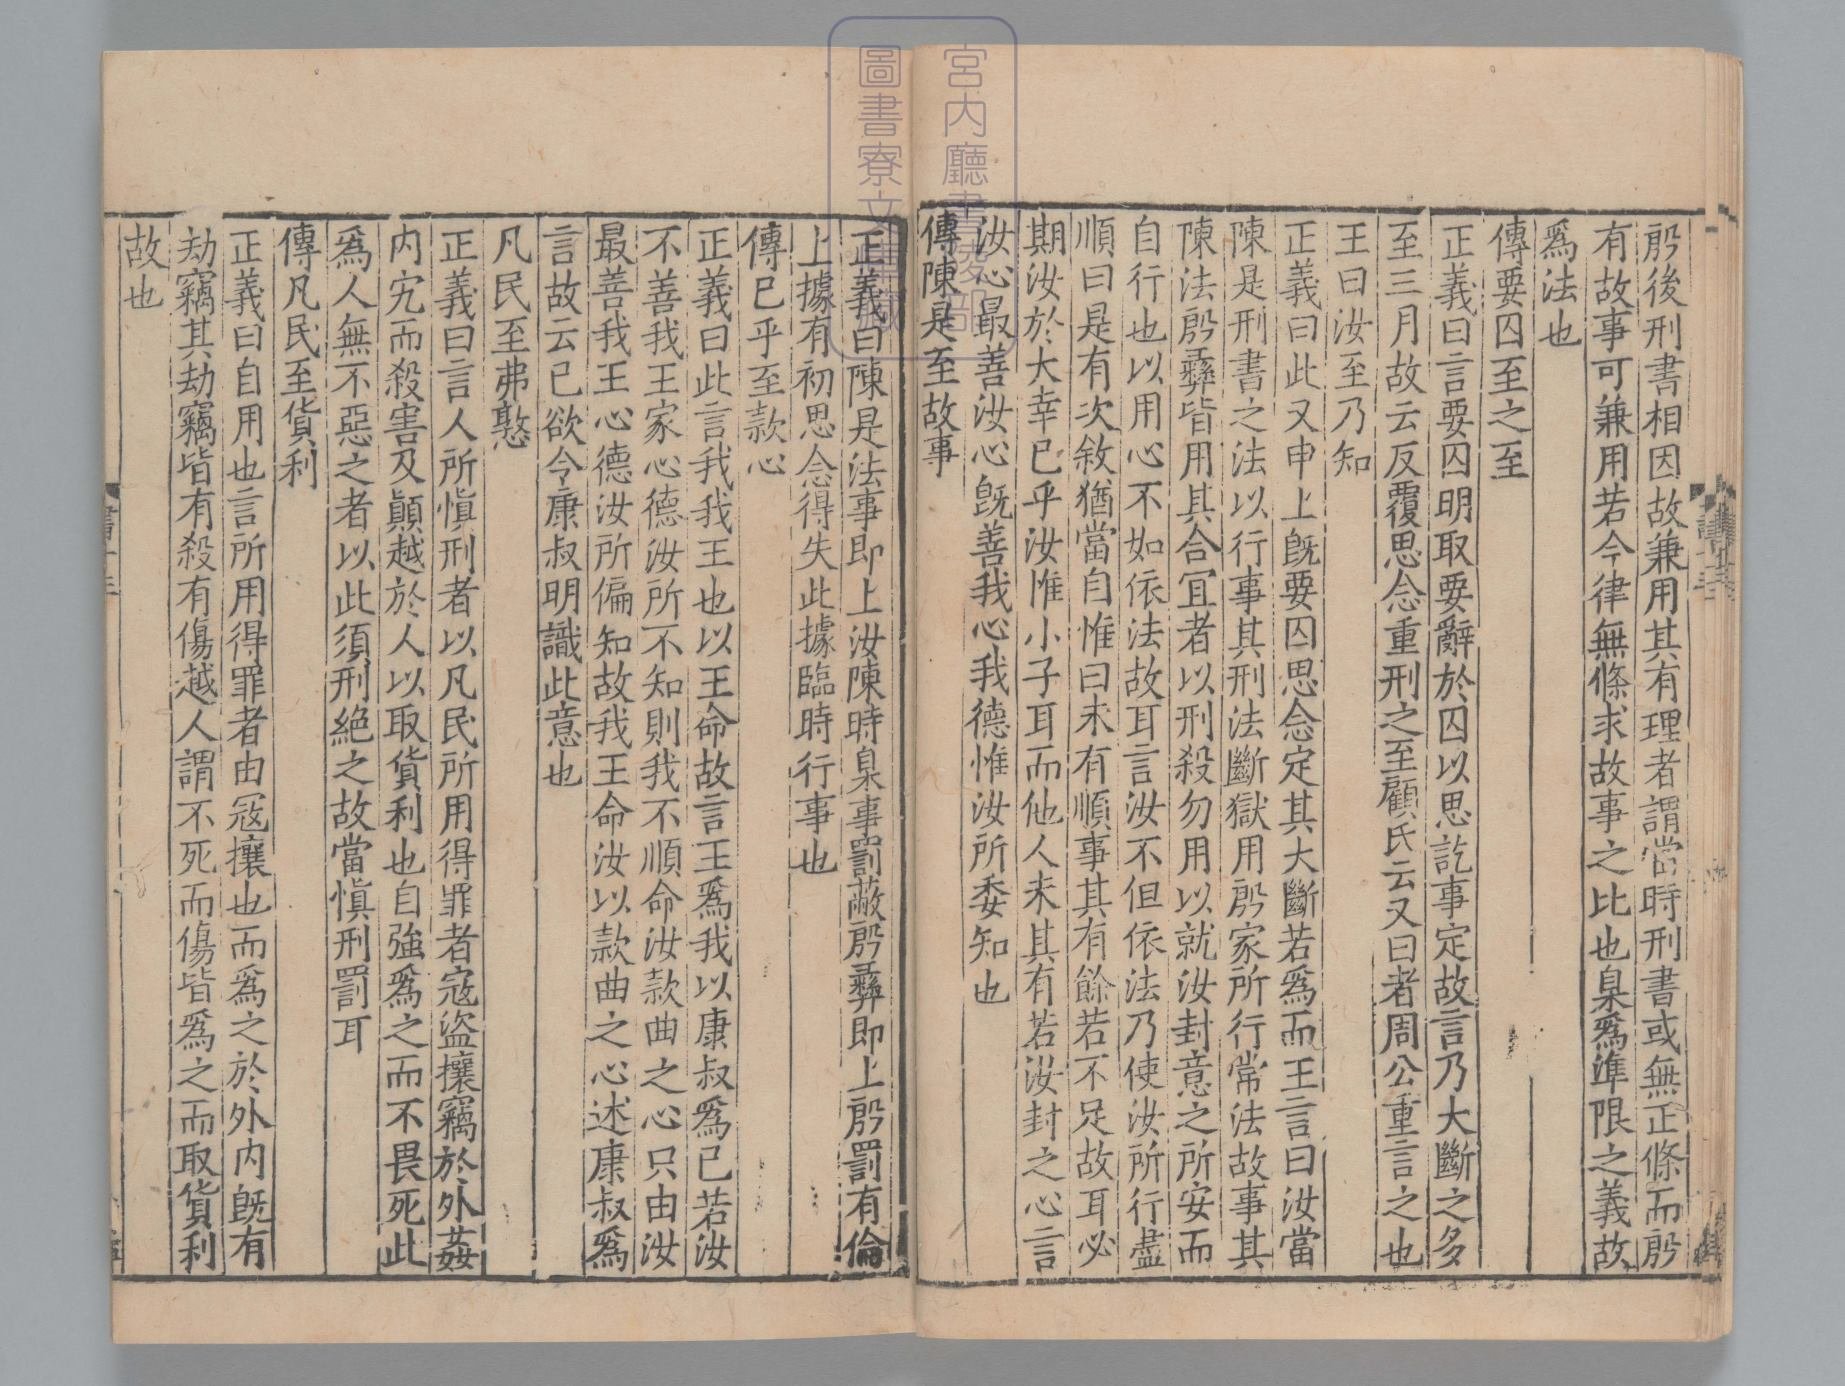 殷後刑書相因故兼用其有理者謂當時刑書或無正條而殷
有故事可兼用若今律無條求故事之比也臬爲準限之義故
爲法也
傳要囚至之至
正義曰言要囚明取要辭於囚以思訖事定故言乃大斷之多
至三月故云反覆思念重刑之至顧氏云又曰者周公重言之也
王曰汝至乃知
正義曰此又申上旣要囚思念定其大斷若爲而王言曰汝當
陳是刑書之法以行事其刑法斷獄用殷家所行常法故事其
陳法殷彝皆用其合宜者以刑殺勿用以就汝封意之所安而
自行也以用心不如依法故耳言汝不但依法乃使汝所行盡
順曰是有次敘猶當自惟曰未有順事其有餘若不足故耳必
期汝於大幸已乎汝惟小子耳而他人未其有若汝封之心言
汝心最善汝心旣善我心我德惟汝所委知也
傳陳是至故事
正義曰陳是法事即上汝陳時臬事罰蔽殷彝即上殷罰有倫
上據有初思念得失此據臨時行事也
傳已乎至款心
正義曰此言我我王也以王命故言王爲我以康叔爲已若汝
不善我王家心德汝所不知則我不順命汝款曲之心只由汝
最善我王心德汝所偏知故我王命汝以款曲之心述康叔爲
言故云已欲令康叔明識此意也
凡民至弗憝
正義曰言人所慎刑者以凡民所用得罪者寇盜攘竊於外姦
内宄而殺害及顚越於人以取貨利也自強爲之而不畏死此
爲人無不惡之者以此須刑絶之故當慎刑罰耳
傳凡民至貨利
正義曰自用也言所用得罪者由寇攘也而爲之於外内旣有
劫竊其劫竊皆有殺有傷越人謂不死而傷皆爲之而取貨利
故也
宮内廳書陵部
圖書寮文庫藏